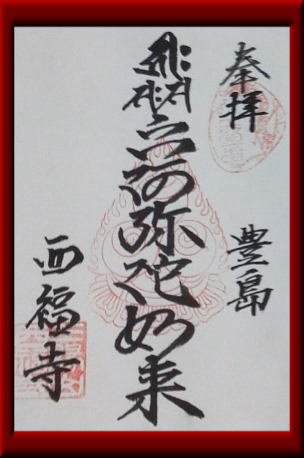 奉拝
豊島
六阿弥陀如来
西福寺